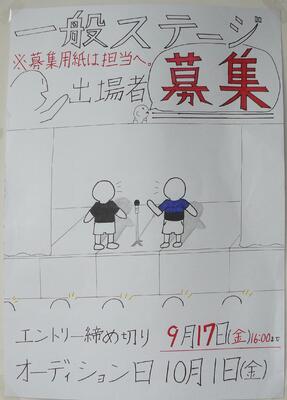 一般ステージ
※募集用紙は担当へ。
出場者募集
エントリー締め切り 9月17日(金)16:00まで
オーディション日 10月1日(金)